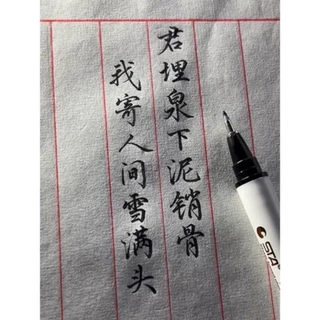 君埋泉下泥销骨
我寄人间雪满头
STA